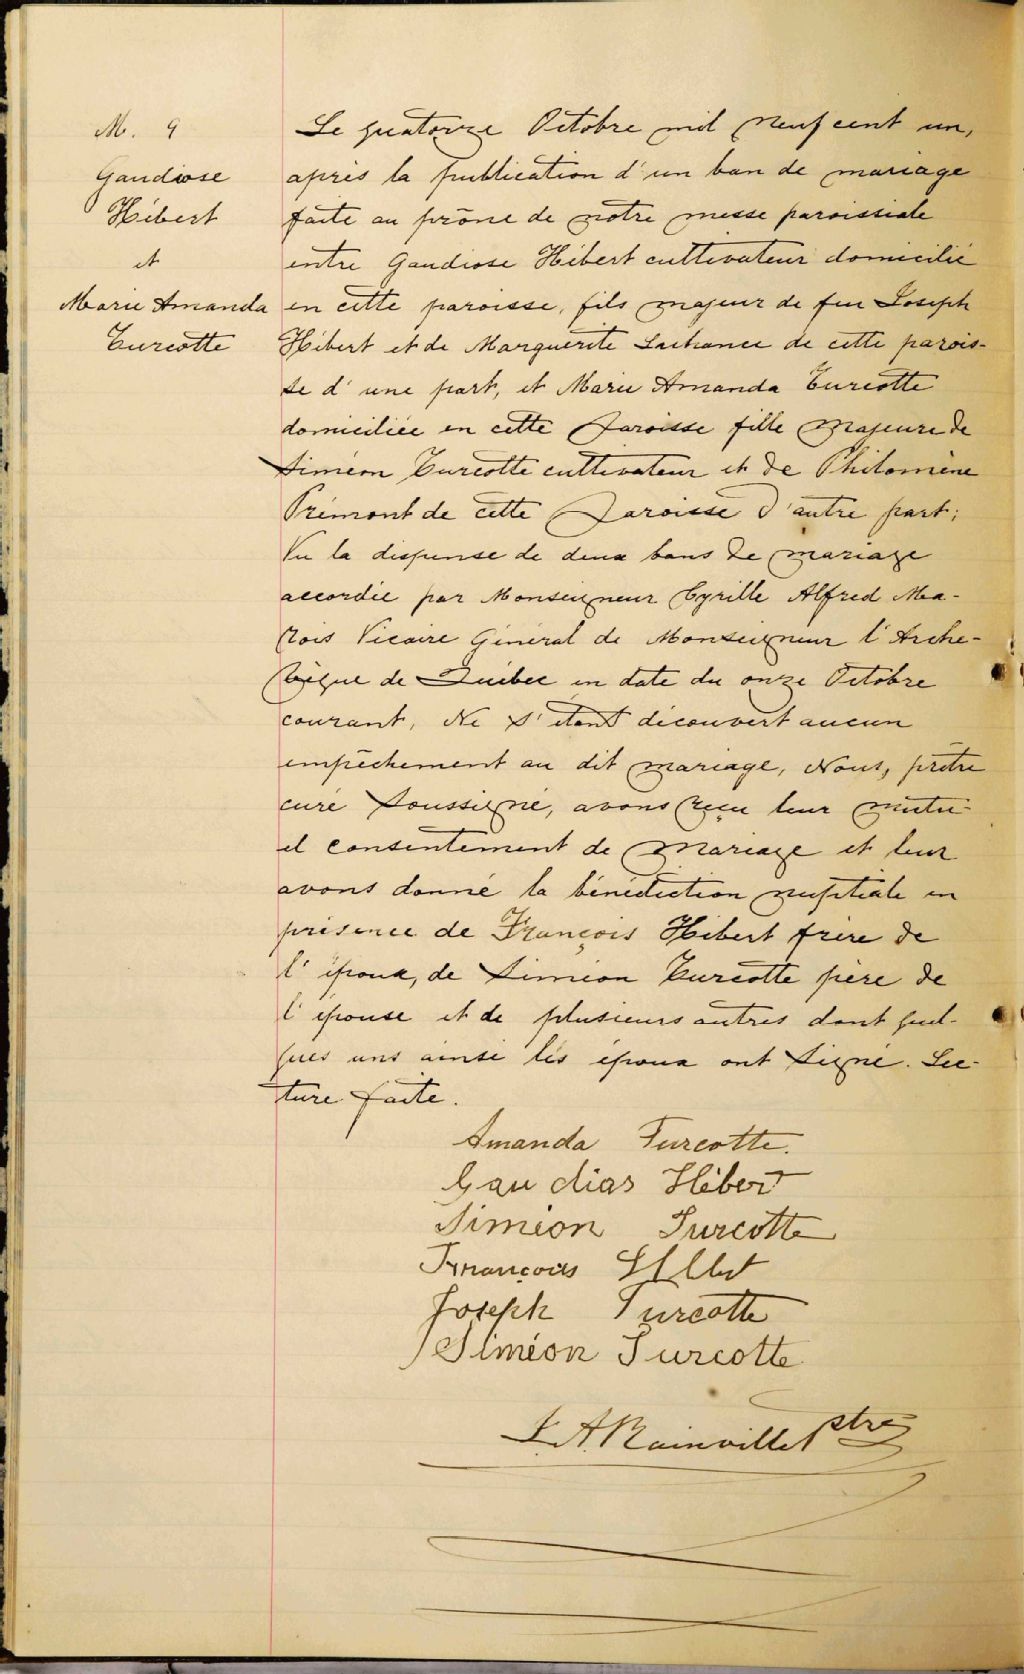 M. 9
Gaudiose
Hébert
et
Marie Amanda
Turcotte
Le quatorze Octobre mil neuf cent un,
après la publication d'un ban de mariage
faite au prône de notre messe paroissiale
entre Gaudiose Hébert cultivateur domicilié
en cette paroisse, fils majeur de feu Joseph
Hébert et de Marguerite Lachance de cette parois-
se d'une part, et Marie Amanda Turcotte
domiciliée en cette paroisse fille majeure de
Siméon Turcotte cultivateur et de Philomène
Prémont de cette paroisse d'autre part;
Vu la dispense de deux bans de mariage
accordée par Monseigneur Cyrille Alfred Ma-
rois Vicaire Général de Monseigneur l'Arche-
vêque de Québec en date du onze Octobre
courant, Ne s'étant découvert aucun
empêchement au dit mariage, Nous, prêtre
curé soussigné, avons reçu leur mutu-
el consentement de mariage et leur
avons donné la bénédiction nuptiale en
présence de François Hébert frère de
l'époux, de Siméon Turcotte père de
l'épouse et de plusieurs autres dont quel-
ques uns ainsi les époux ont signé. Lec-
ture faite.
Amanda Turcotte.
Gaudias Hébert
Siméon Turcotte
François
Joseph Turcotte
Siméon Turcotte
A. Rainville Ptre